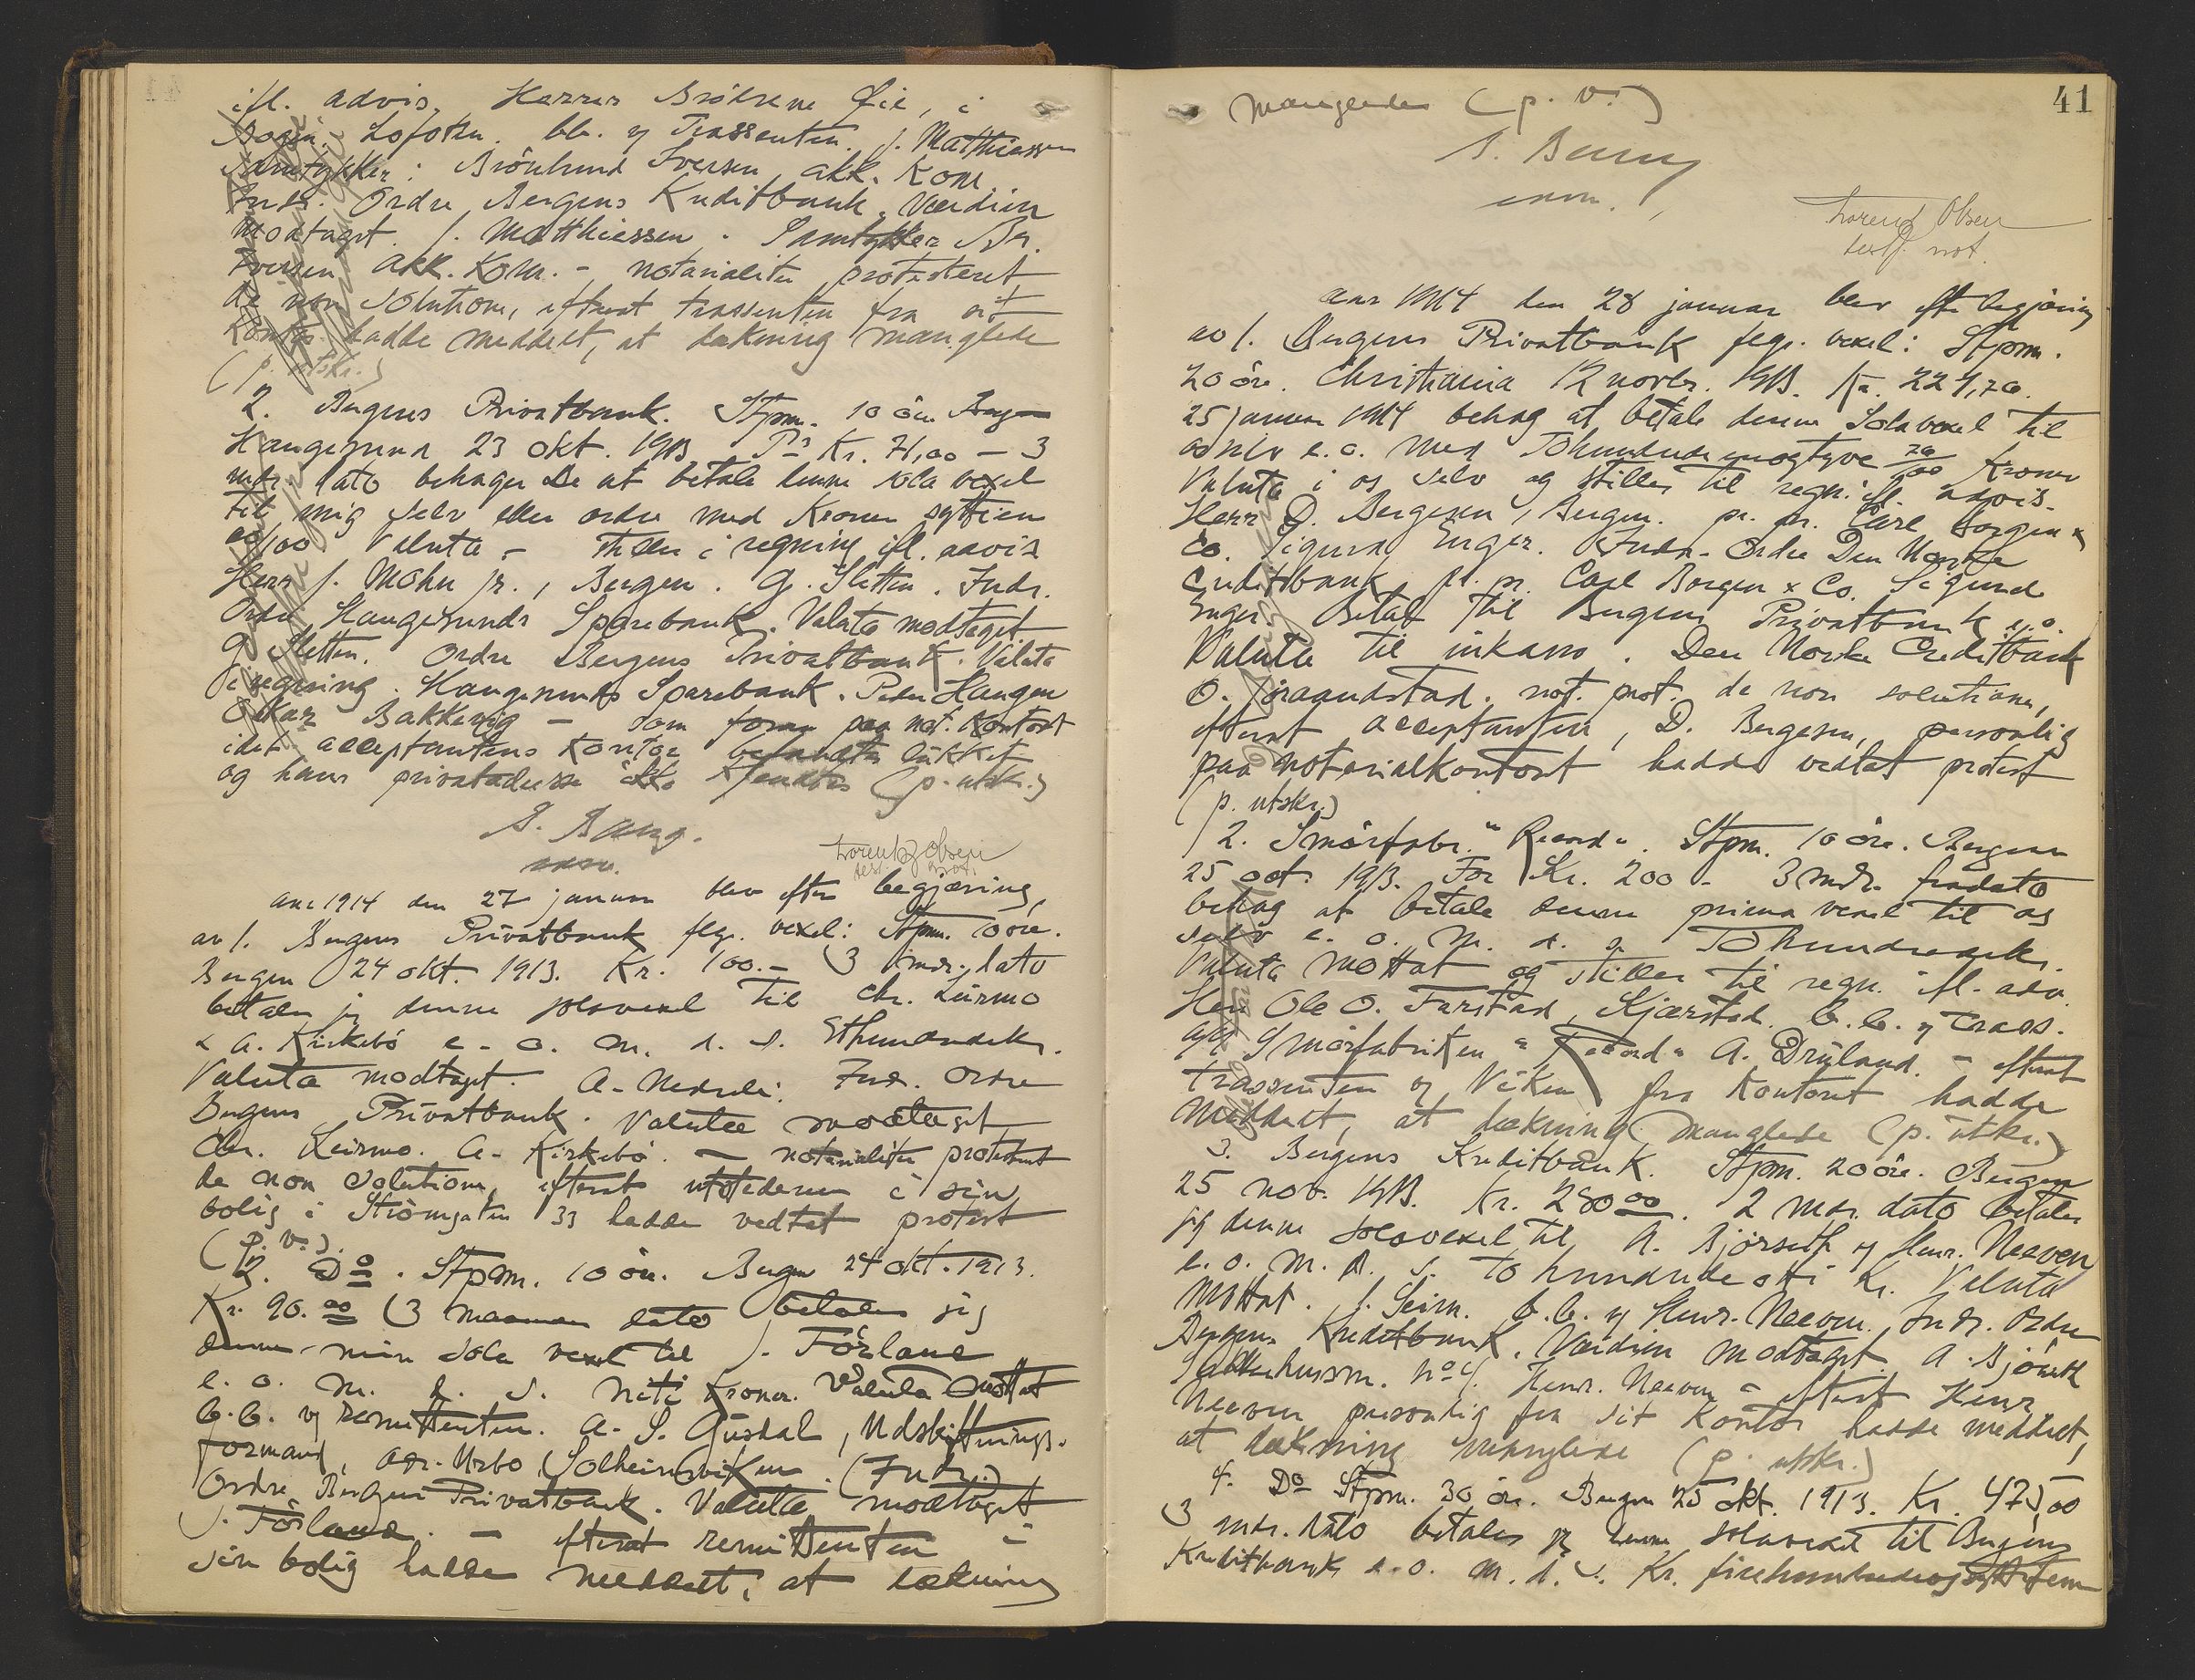 ifl. advis. Herrer Brödrene Öie, i
Bogen. Lofoten. bb. og Trassenten. J. Matthiessen
Samtykker: Brönlund Iversen akk. Kom
Indr. Ordre Bergens Kreditbank. Værdien
modtaget. J. Matthiessen. Samtykker Br.
Iversen akk. Kom. - notarialiter protesteret
de non solutione, efterat trassenten fra sit
kontor hadde meddelt, at dækning manglede
(p. utskr.)
2. Bergens Privatbank. Stpm. 10 öre
Haugesund 23 okt. 1913 Pr Kr. 71,00 - 3
mdr. dato behager De at betale denne sola vexel
til mig selv eller ordre med Kroner sytti en
00/100 Valuta - stilles i regning ifl. advis
Herr J. Mohn jr., Bergen. G. Sletten. Indr.
Ordre Haugesunds Sparebank. Valuta modtaget
G. Sletten. Ordre Bergens Privatbank. Valuta
i regning. Haugesunds Sparebank. Peder Haugen
Oskar Bakkevig - som foran paa not. Kontort
idet acceptantens kontor befandtes lukket
og hans privatadresse ikke kjendtes (p. utskr.)
B. Bang.
Lorentz Olsen
test. not.
Aar 1914 den 27 januar blev efter begjæring
av 1. Bergens Privatbank flg. vexel: Stpm. 10 öre.
Bergen 24 okt. 1913. Kr. 100.- 3 mdr. dato
betaler jeg denne solavexel til Chr. Leirmo
& A. Kirkebö e. o. m. d. s. Ethundredekr.
Valuta modtaget. A. Indr. Ordre
Bergens Privatbank. Valuta modtaget
Chr. Leirmo. A. Kirkebö. - notarialiter protestert
de non solutione, efterat utstederen i sin
bolig i Strömgaten 33 hadde vedtat protest
(p. v.).
2. Do. Stpm. 10 öre. Bergen 24 okt. 1913.
Kr. 90.00 3 maaneder dato betaler jeg
denne min sola vexel til J. Förland
e. o. m. d. s. niti kroner. Valuta mottat
b.b. og remittenten. A. S. Gusdal, Udskiftnings-
formand, adr. Solheimsviken. (Indr.)
Ordre Bergens Privatbank. Valuta modtaget
J. Förland. - efterat remittenten i
sin bolig hadde meddelt, at dækning
41
manglede (p. v.)
B. Bang
Lorentz Olsen
test. not.
Aar 1914 den 28 januar blev efter begjæring
av 1. Bergens Privatbank flg. vexel: Stpm.
20 öre. Christiania 12 novbr. 1913. Kr. 221,70.
25 januar 1914 behag at betale denne Solavexel til
os selv e. o. med Tohundrede enogtyve 70/00 kroner
Valuta i os selv og stilles til regn. ifl. advis.
Herr D. Bergesen, Bergen. pr. pr. Carl Borgen &
Co. Sigurd Enger. Indr. Ordre Den Norske
Creditbank pr. pr. Carl Borgen & Co. Sigurd
Enger. Betal til Bergens Privatbank e. o.
Valuta til inkasso. Den Norske Creditbank
not. prot. de non solutione,
efterat acceptanten, D. Bergesen, personlig
paa notarialkontoret hadde vedtat protest
(p. utskr.)
2. Smörfabr. "Record". Stpm. 10 öre. Bergen
25 oct. 1913. For Kr. 200.- 3 mdr. fra dato
behag at betale denne prima vexel til os
selv e. o. m. d. s. Tohundredekr.
Valuta mottat og stilles til regn. ifl. adv.
Herr Ole O. Farstad, Kjærstad. b.b. og Trass.
Smörfabriken "Record" A. Dryland. - efterat
trassenten og Viken fra Kontoret hadde
meddelt, at dækning manglede (p. utskr.)
3. Bergens Kreditbank. Stpm. 20 öre. Bergen
25 nov. 1913. Kr. 280 00. 2 mdr. dato betaler
jeg denne solavexel til A. Björseth og Henr. Neeven
e. o. m. d. s. to hundrede otti Kr. Valuta
mottat. J. Seim. b.b. og Henr. Neeven. Indr. Ordre
Bergens Kreditbank. Værdien modtaget. A. Björseth
No 4. Henr. Neeven - efterat Henr.
Neeven personlig fra sit kontor hadde meddelt,
at dækning manglede (p. utskr.)
4. Do Stpm. 30 öre. Bergen 25 okt. 1913. Kr. 475,00
3 mdr. dato betaler jeg denne solavexel til Bergens
Kreditbank e. o. m. d. s. Kr. firehundredeogsyttifem